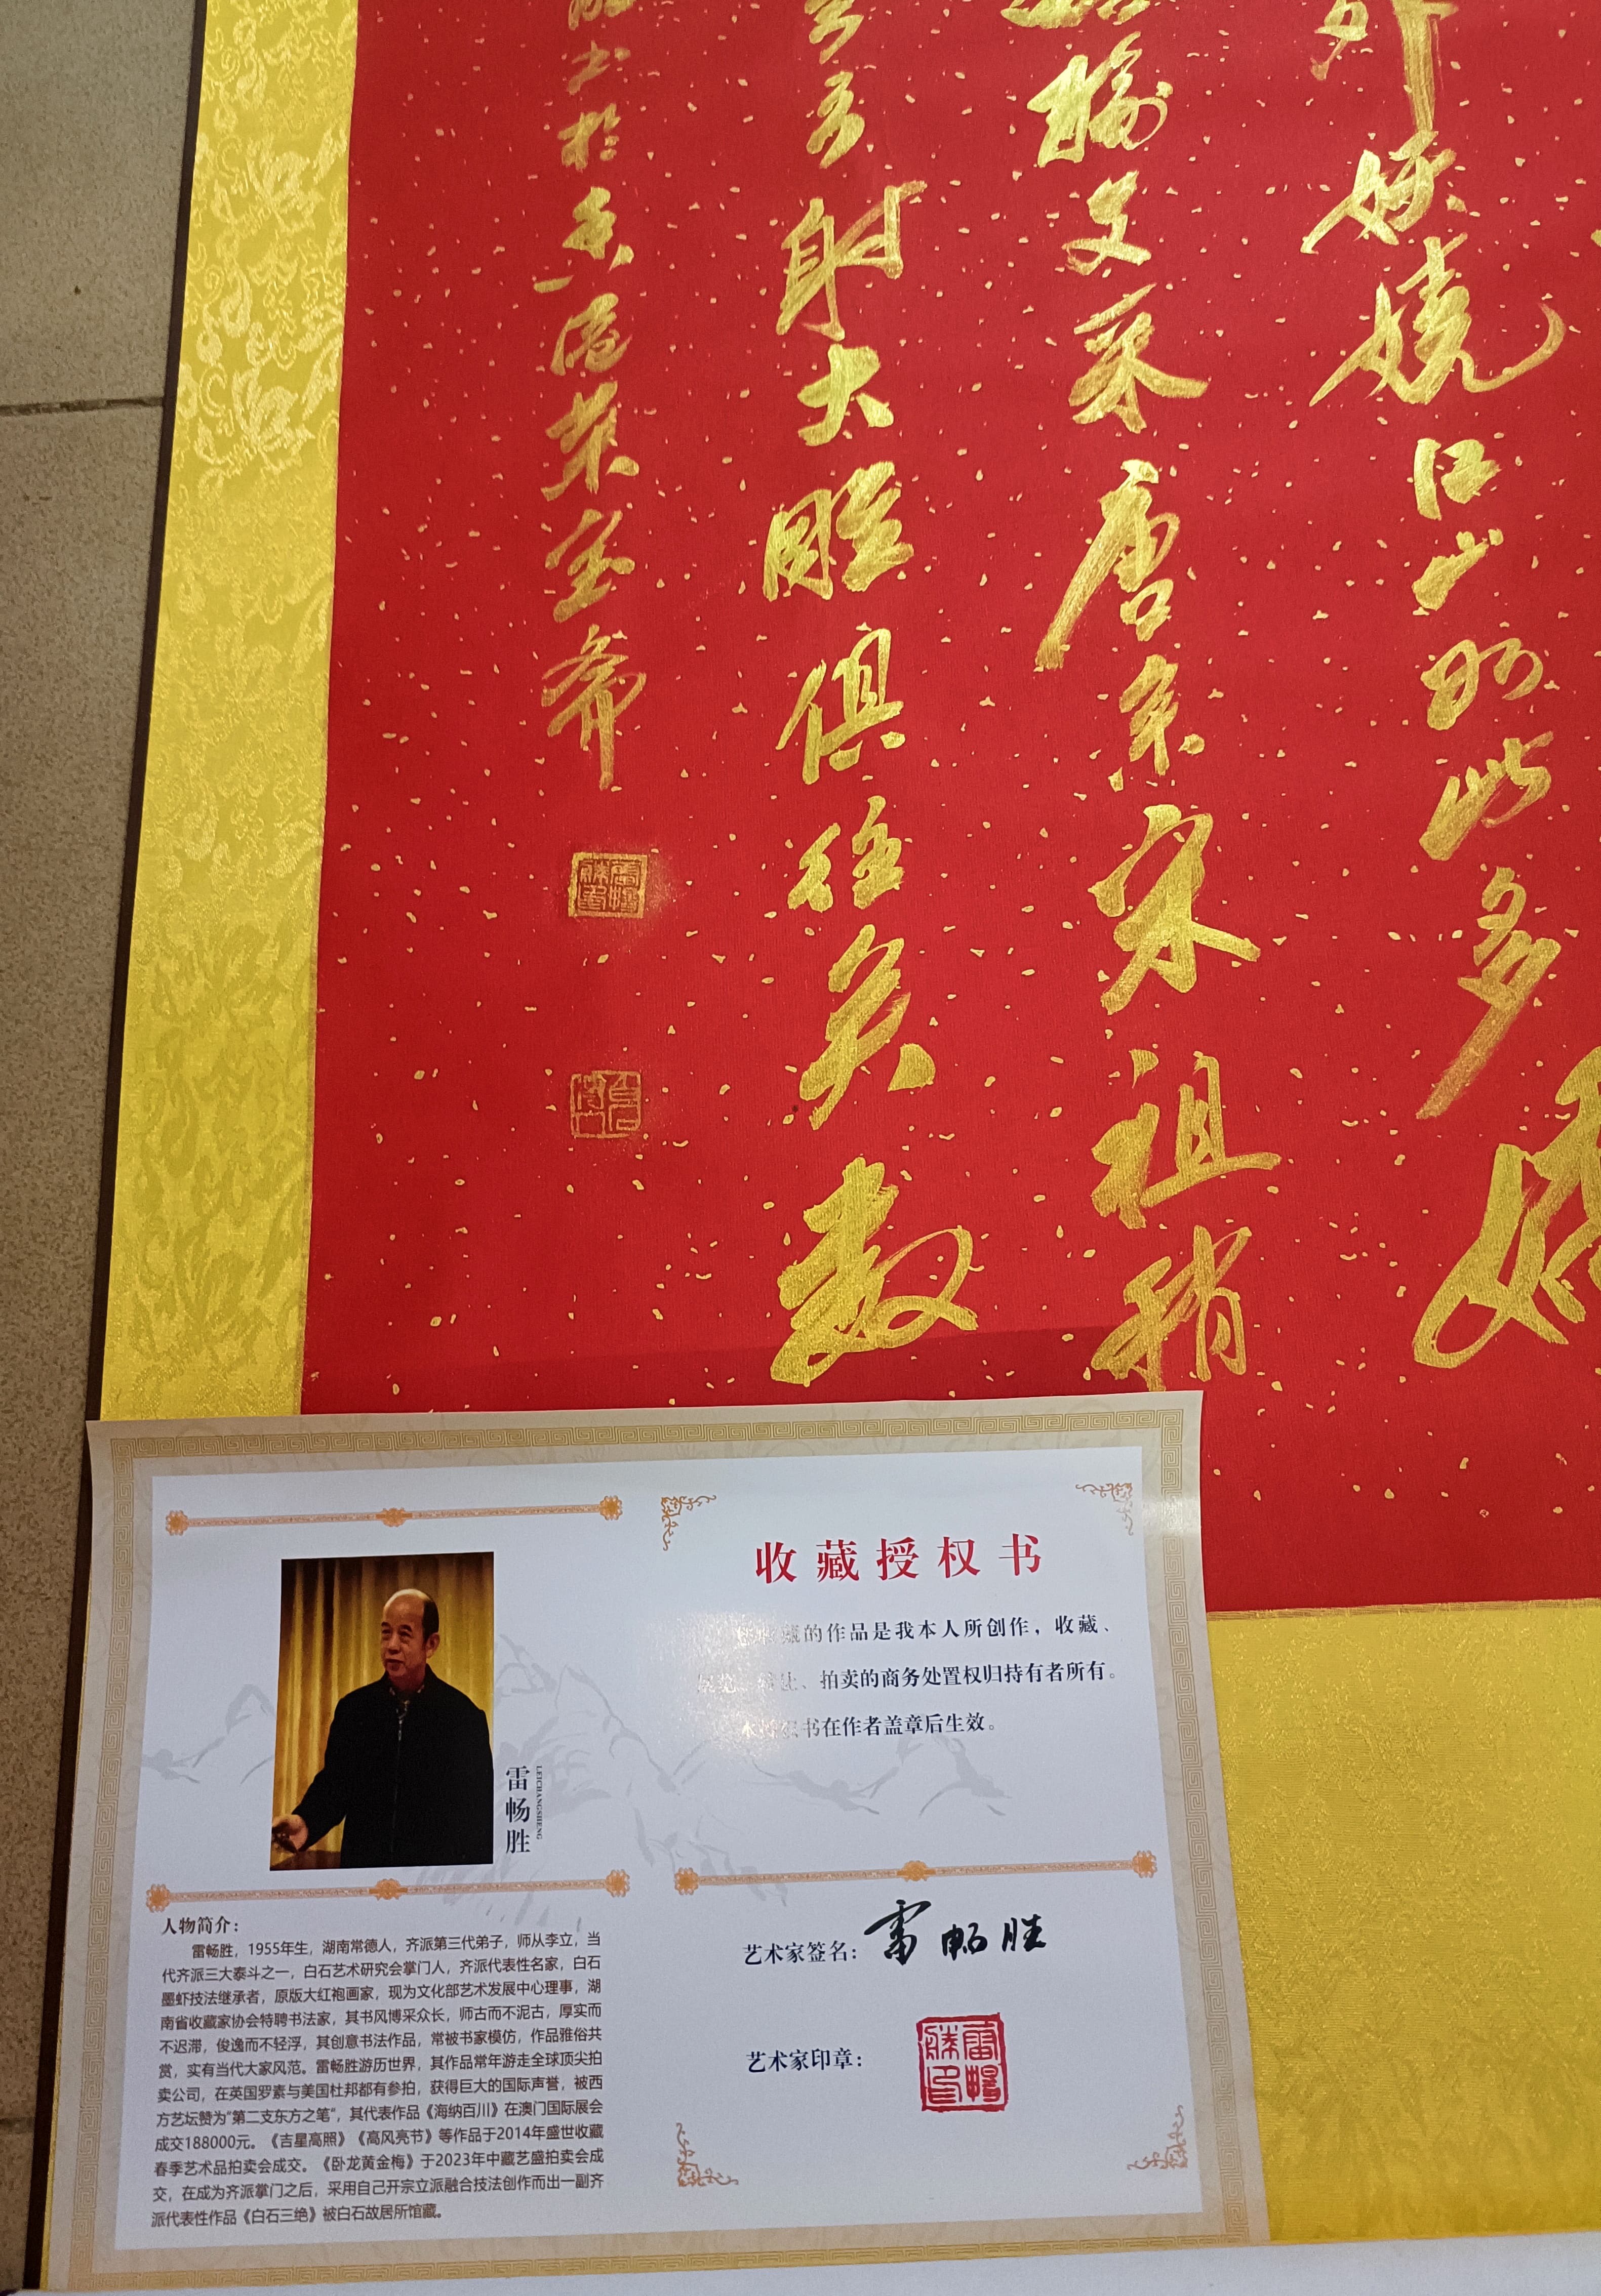 外妖娆江山如此多
输文采唐宗宋祖稍
射大雕俱往矣数
於
收藏授权书
藏的作品是我本人所创作，收藏、
拍卖的商务处置权归持有者所有。
书在作者盖章后生效。
雷畅胜
LEICHANGSHENG
人物简介：
雷畅胜，1955年生，湖南常德人，齐派第三代弟子，师从李立，当
代齐派三大泰斗之一，白石艺术研究会掌门人，齐派代表性名家，白石
墨虾技法继承者，原版大红袍画家，现为文化部艺术发展中心理事，湖
南省收藏家协会特聘书法家，其书风博采众长，师古而不泥古，厚实而
不迟滞，俊逸而不轻浮，其创意书法作品，常被书家模仿，作品雅俗共
赏，实有当代大家风范。雷畅胜游历世界，其作品常年游走全球顶尖拍
卖公司，在英国罗素与美国杜邦都有参拍，获得巨大的国际声誉，被西
方艺坛赞为“第二支东方之笔”，其代表作品《海纳百川》在澳门国际展会
成交188000元。《吉星高照》《高风亮节》等作品于2014年盛世收藏
春季艺术品拍卖会成交。《卧龙黄金梅》于2023年中藏艺盛拍卖会成
交，在成为齐派掌门之后，采用自己开宗立派融合技法创作而出一副齐
派代表性作品《白石三绝》被白石故居所馆藏。
艺术家签名：雷畅胜
艺术家印章：
雷暢勝印